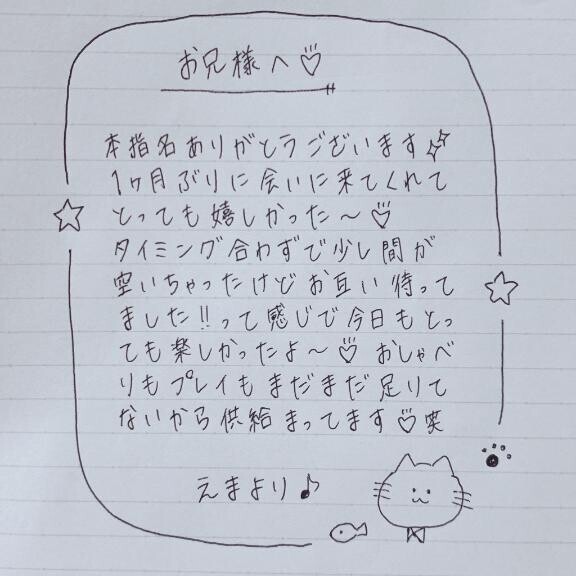 お兄様へ♡
本指名ありがとうございます✨
1ヶ月ぶりに会いに来てくれて
とっても嬉しかった〜♡
タイミング合わずで少し間が
空いちゃったけどお互い待って
ました!!って感じで今日もとっ
ても楽しかったよ〜♡ おしゃべ
りもプレイもまだまだ足りて
ないから供給まってます♡笑
えまより♪